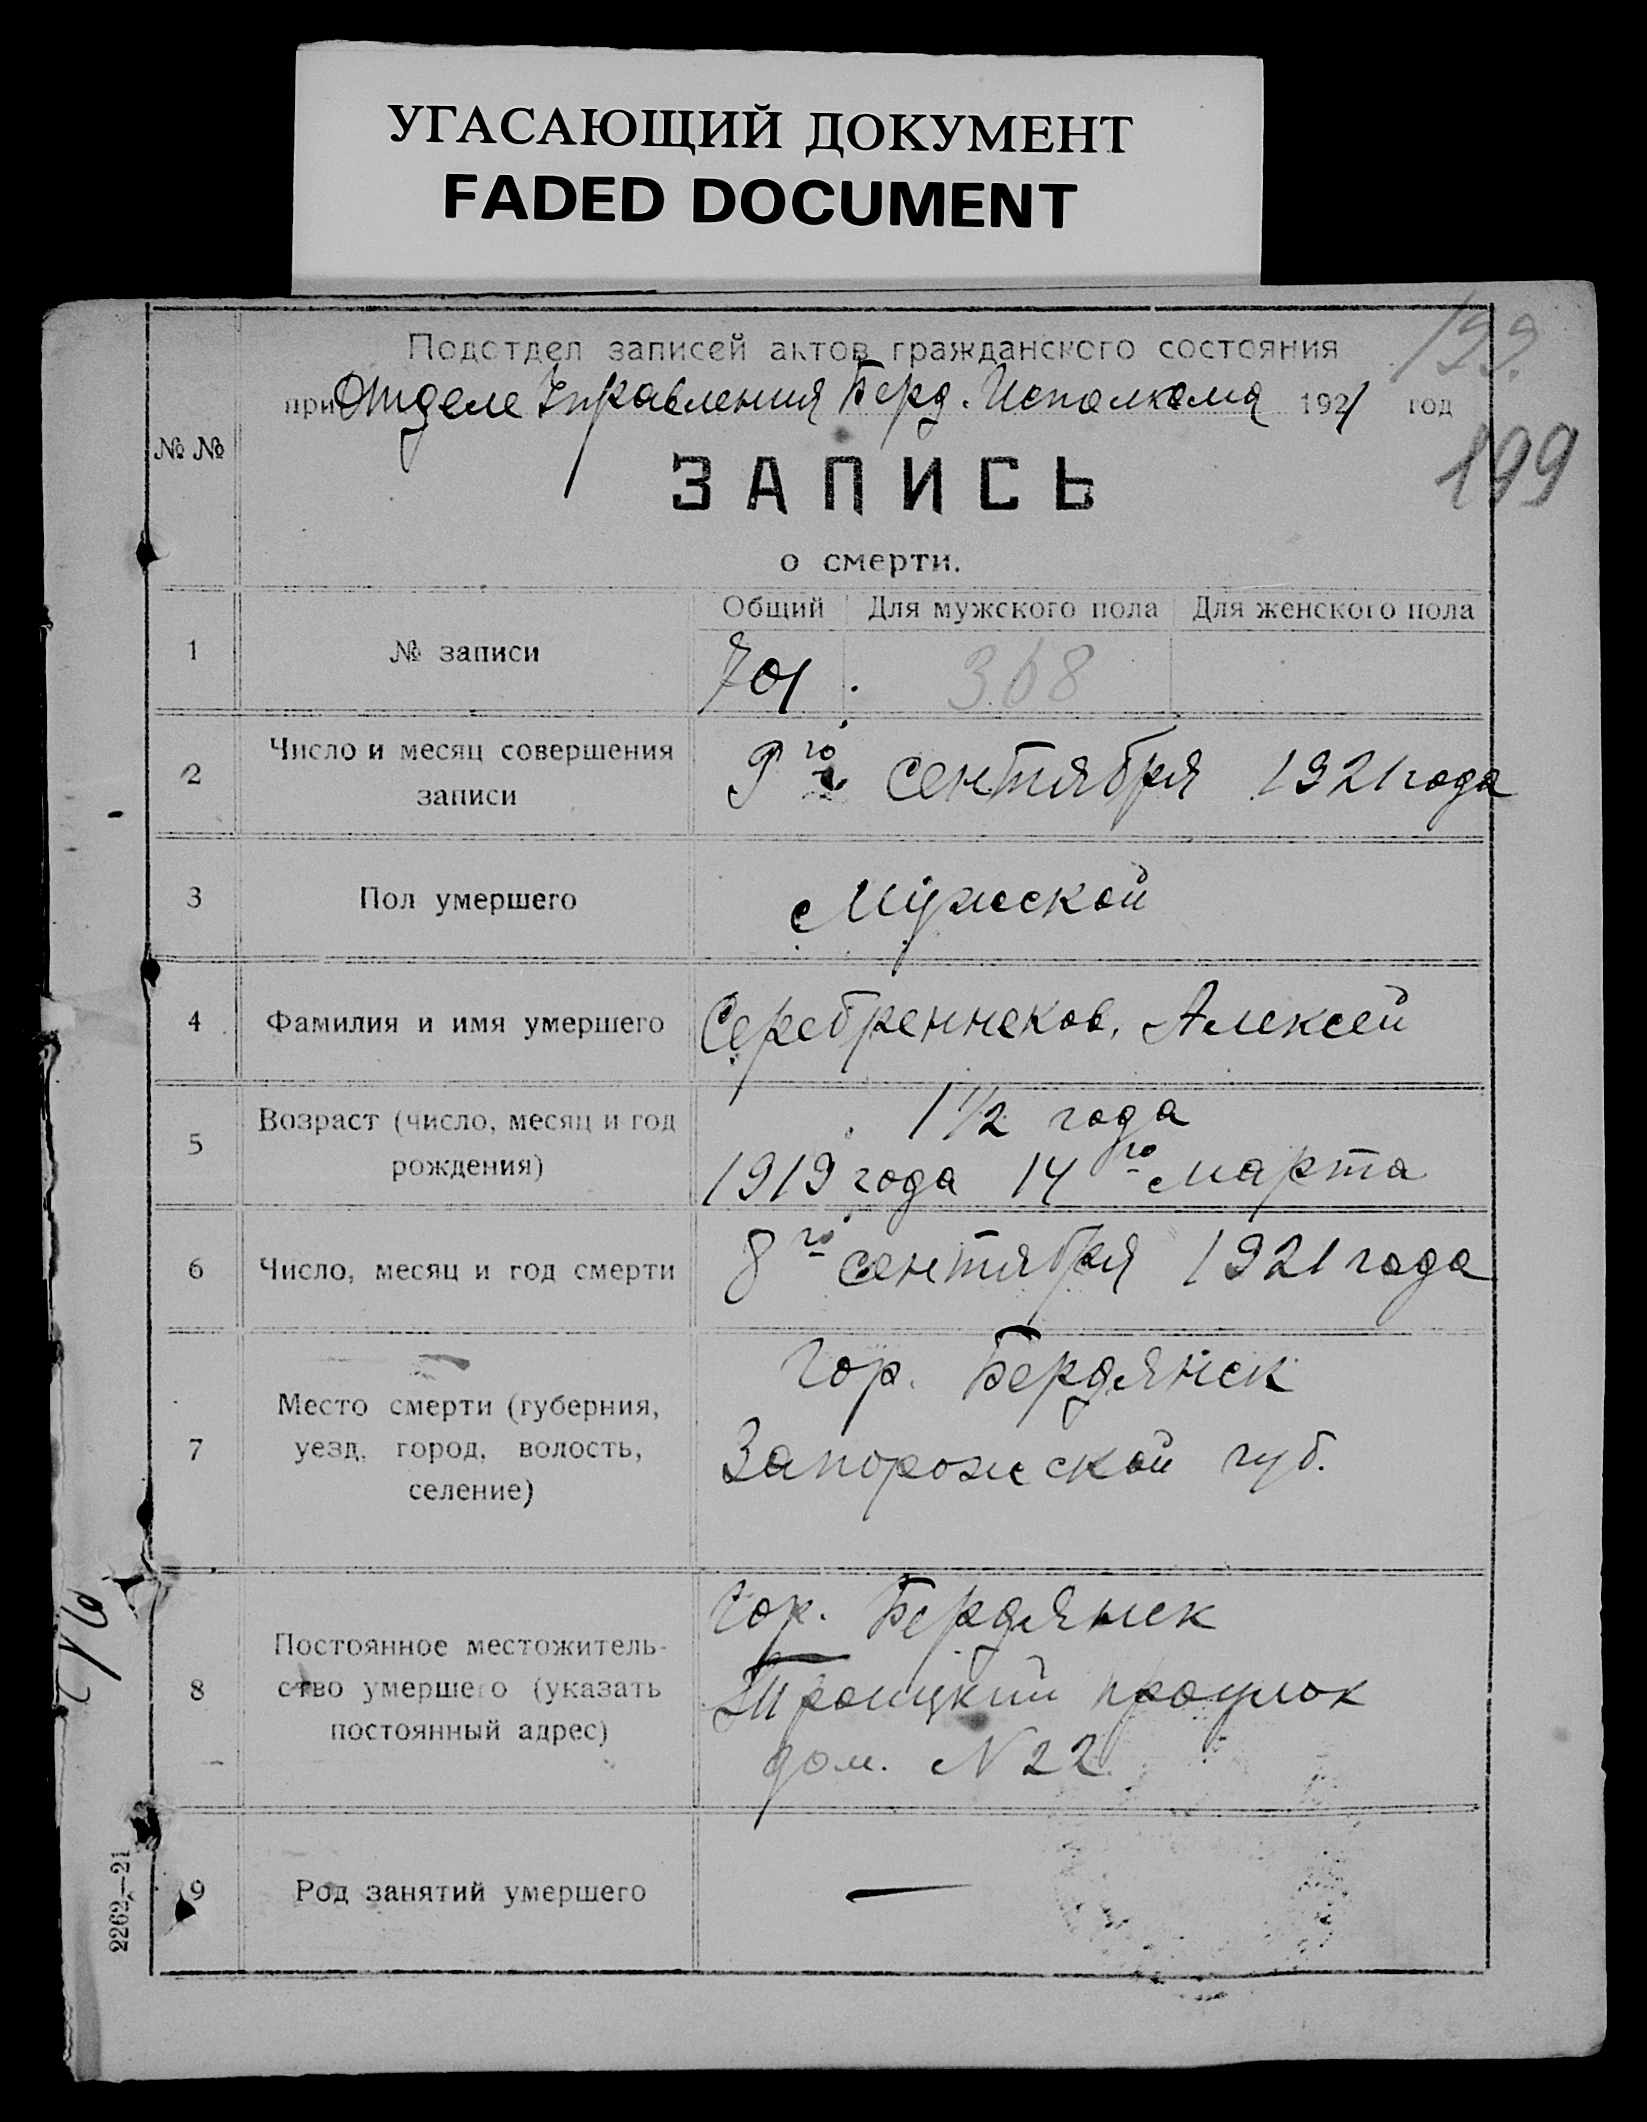 УГАСАЮЩИЙ ДОКУМЕНТ
FADED DOCUMENT
199.
Подотдел записей актов гражданского состояния
при Отделе Управления Берд. Исполкома 1921 год
199
№ №
ЗАПИСЬ
о смерти.
Общий Для мужского пола Для женского пола
1 № записи 701. 368
2 Число и месяц совершения
записи
9го сентября 1921 года
3 Пол умершего Мужской
4 Фамилия и имя умершего Серебренников, Алексей
5 Возраст (число, месяц и год
рождения)
1 1/2 года
1919 года 14го марта
6 Число, месяц и год смерти 8го сентября 1921 года
7 Место смерти (губерния,
уезд, город, волость,
селение)
Гор. Бердянск
Запорожской губ.
8 Постоянное местожитель-
ство умершего (указать
постоянный адрес)
Гор. Бердянск
Троицкий проулок
дом. N 22
9 Род занятий умершего —
2262—21